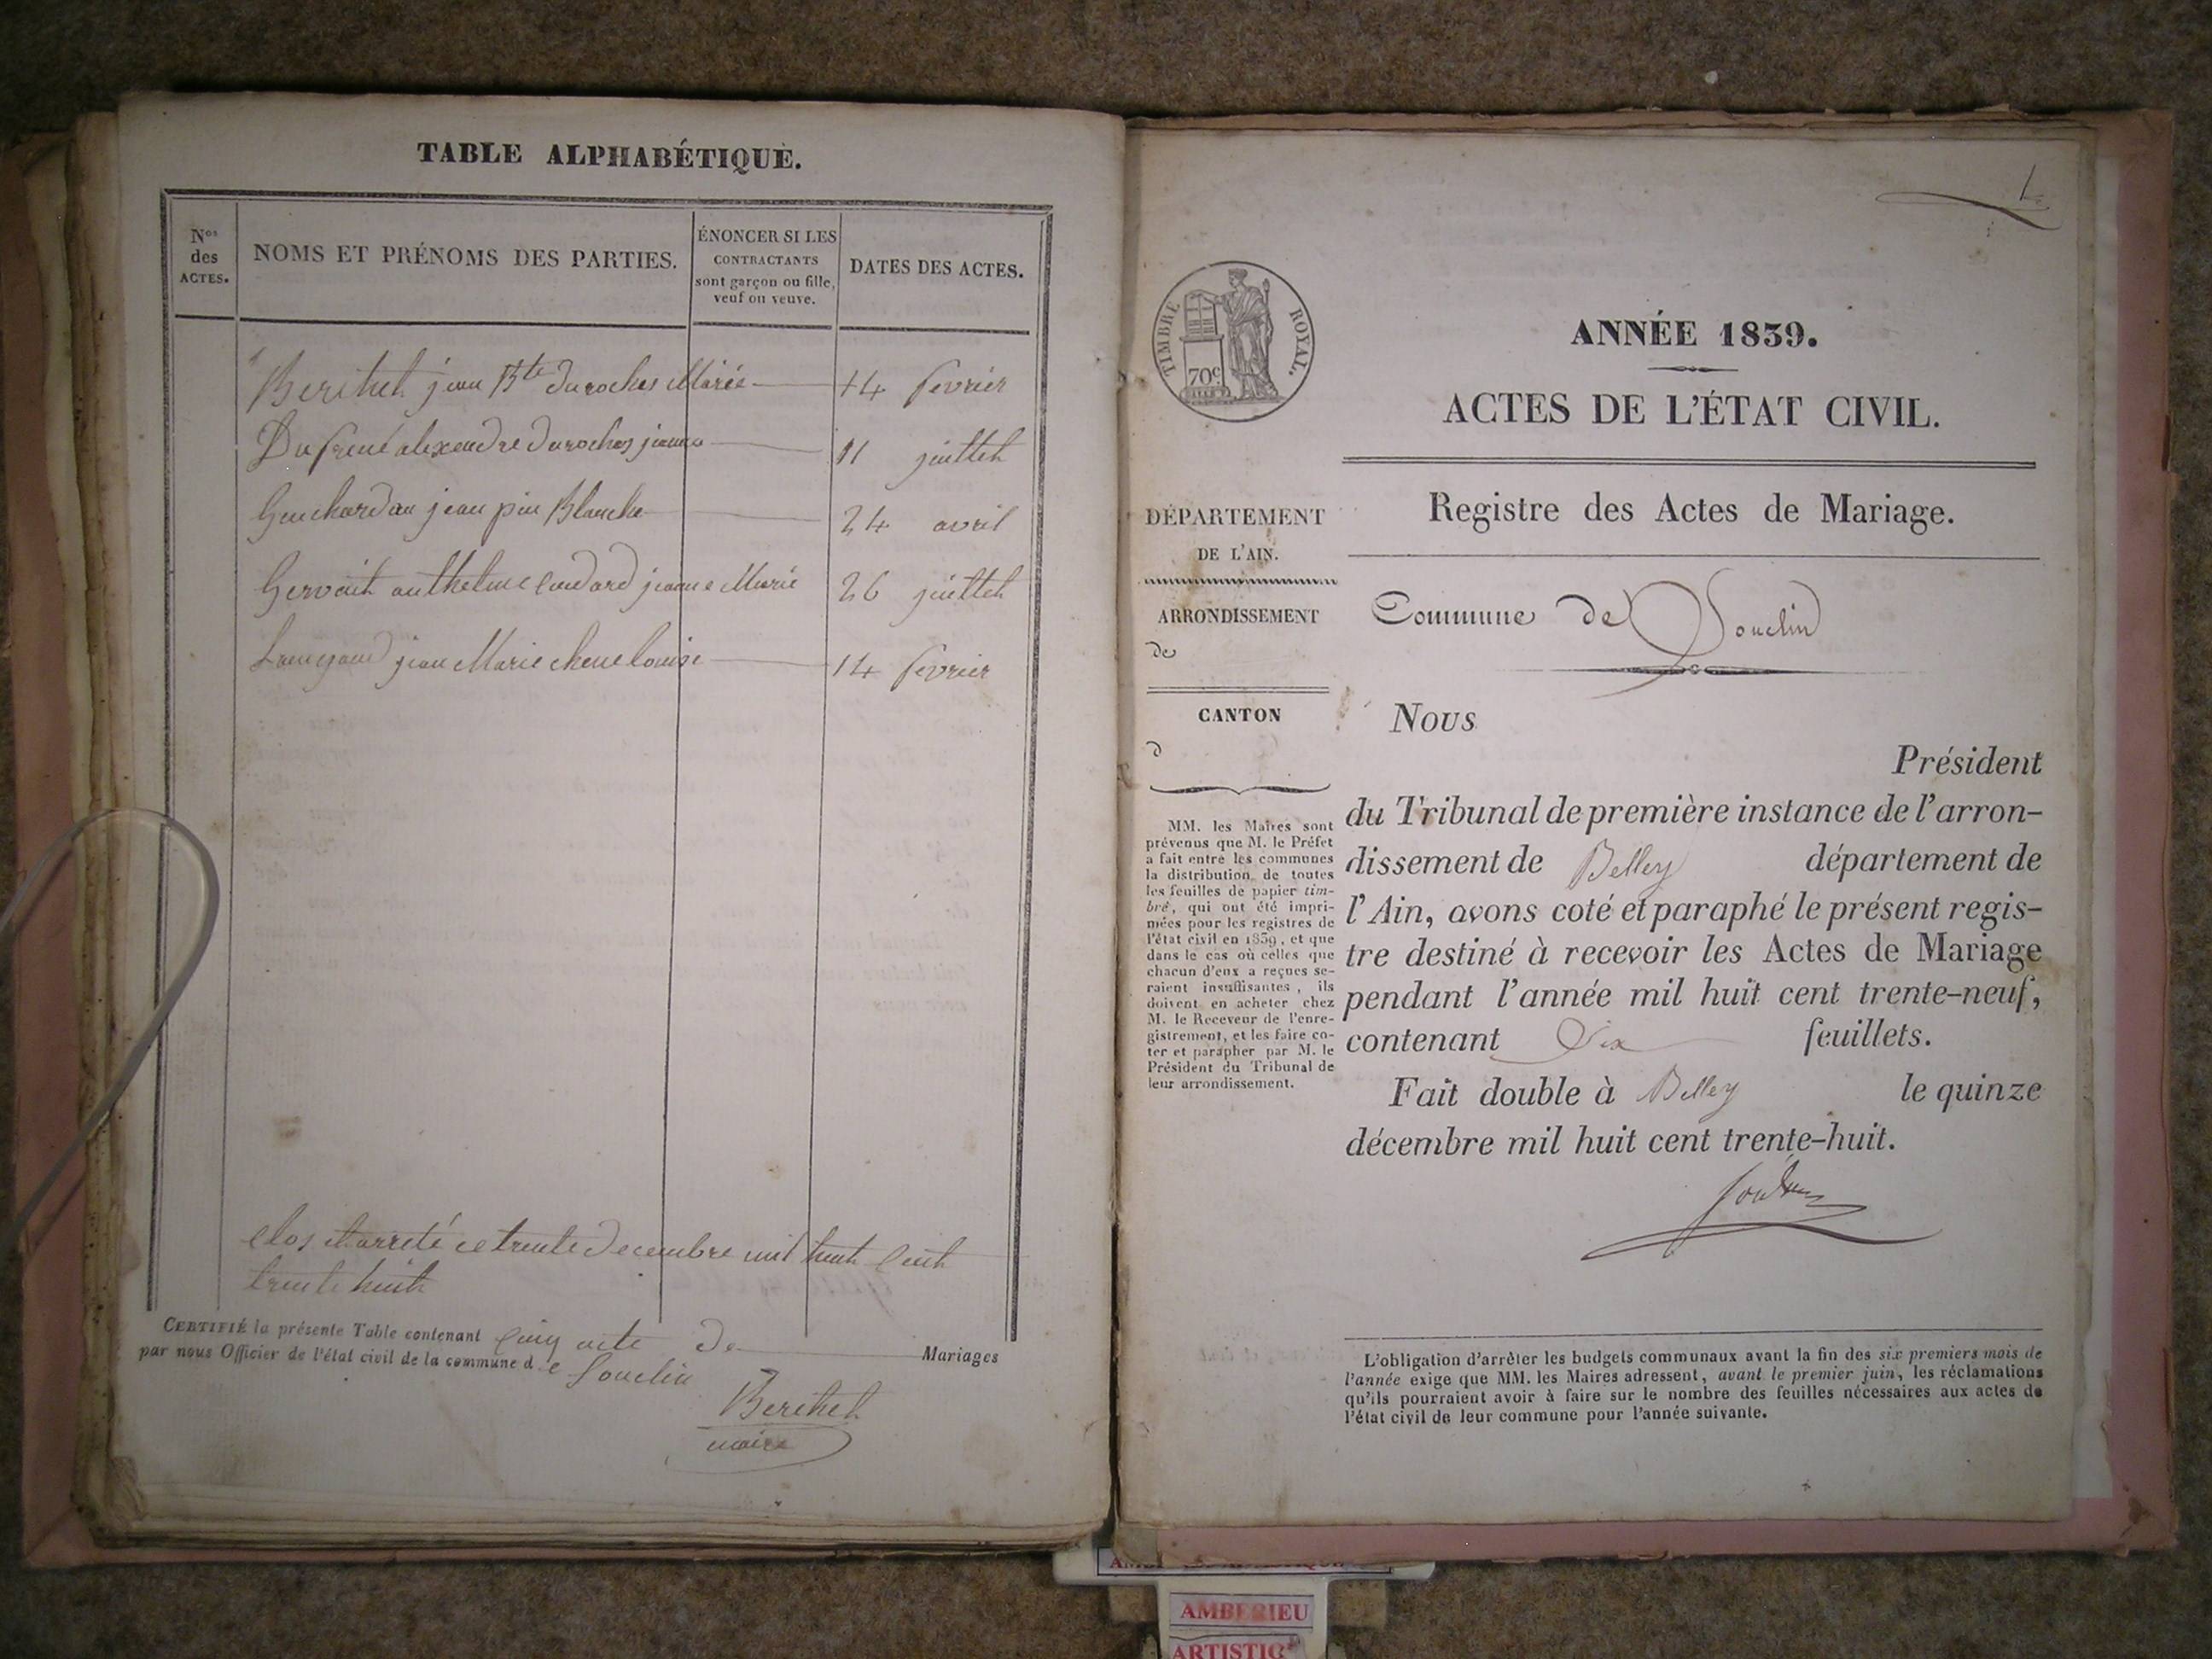 TABLE ALPHABÉTIQUE.
Nos des ACTES.
NOMS ET PRÉNOMS DES PARTIES.
ÉNONCER SI LES
CONTRACTANTS
sont garçon ou fille,
veuf ou veuve.
DATES DES ACTES.
Berthet jean Bte Duroches Marie 14 fevrier
alexendre Duroches jeanne 11 juillet
jean pin Blanche 24 avril
Gervait anthelme jeanne Marie 26 juillet
jean Marie chene louise 14 fevrier
clos et arreté ce trente decembre mil huit cent
trente huit
CERTIFIÉ la présente Table contenant cinq acte de Mariages
par nous Officier de l'état civil de la commune de Souclin
Berthet
maire
TIMBRE ROYAL.
70c
ANNÉE 1839.
ACTES DE L'ÉTAT CIVIL.
Registre des Actes de Mariage.
DÉPARTEMENT
DE L'AIN.
ARRONDISSEMENT
de
CANTON
d
MM. les Maires sont
prévenus que M. le Préfet
a fait entre les communes
la distribution de toutes
les feuilles de papier tim-
bré, qui ont été impri-
mées pour les registres de
l'état civil en 1839, et que
dans le cas où celles que
chacun d'eux a reçues se-
raient insuffisantes, ils
doivent en acheter chez
M. le Receveur de l'enre-
gistrement, et les faire co-
ter et parapher par M. le
Président du Tribunal de
leur arrondissement.
Commune de Souclin
Nous
Président
du Tribunal de première instance de l'arron-
dissement de Belley département de
l'Ain, avons coté et paraphé le présent regis-
tre destiné à recevoir les Actes de Mariage
pendant l'année mil huit cent trente-neuf,
contenant Six feuillets.
Fait double à Belley le quinze
décembre mil huit cent trente-huit.
L'obligation d'arrêter les budgets communaux avant la fin des six premiers mois de
l'année exige que MM. les Maires adressent, avant le premier juin, les réclamations
qu'ils pourraient avoir à faire sur le nombre des feuilles nécessaires aux actes de
l'état civil de leur commune pour l'année suivante.
AMBERIEU
ARTISTIQ